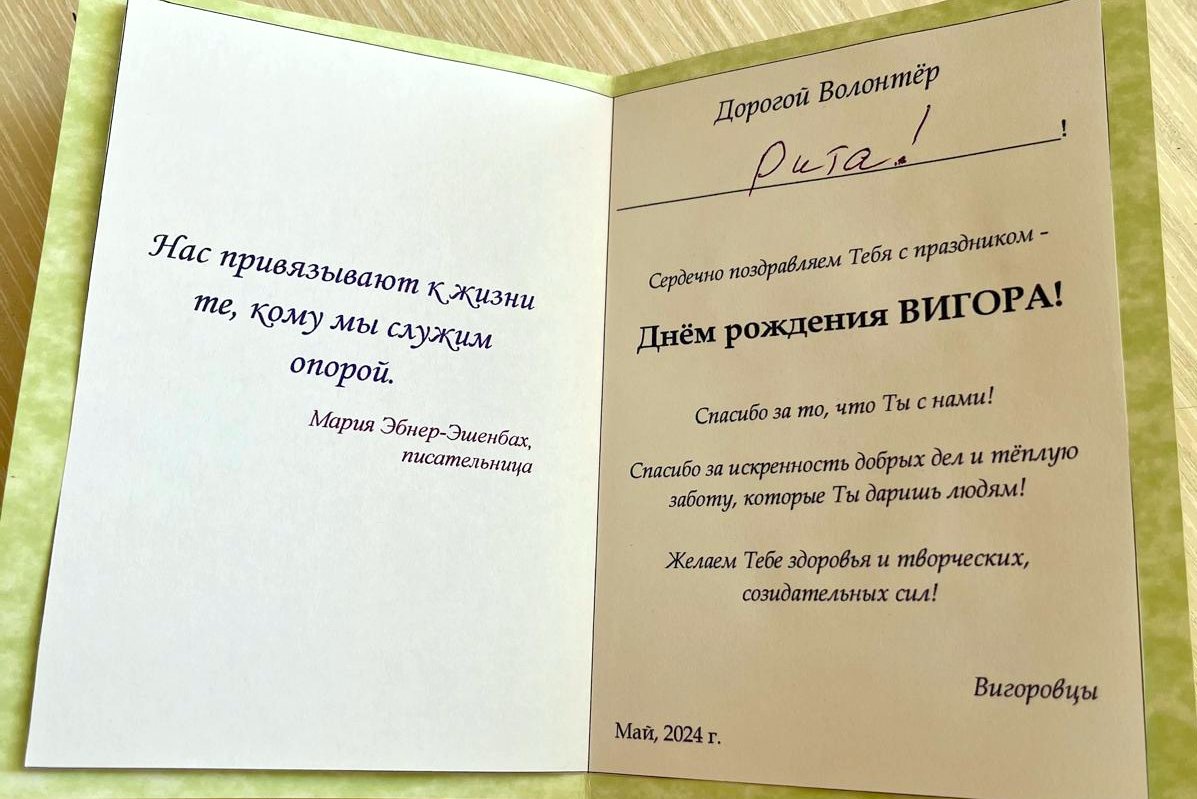 Нас привязывают к жизни
те, кому мы служим
опорой.
Мария Эбнер-Эшенбах,
писательница
Дорогой Волонтёр
Рита!
!
Сердечно поздравляем Тебя с праздником -
Днём рождения ВИГОРА!
Спасибо за то, что Ты с нами!
Спасибо за искренность добрых дел и тёплую
заботу, которые Ты даришь людям!
Желаем Тебе здоровья и творческих,
созидательных сил!
Вигоровцы
Май, 2024 г.